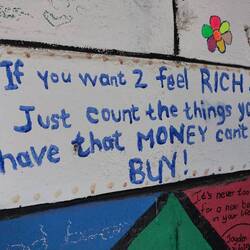 If you want 2 feel RICH
Just count the things you
have that MONEY can't
BUY!
It's never too
for a new be
in your